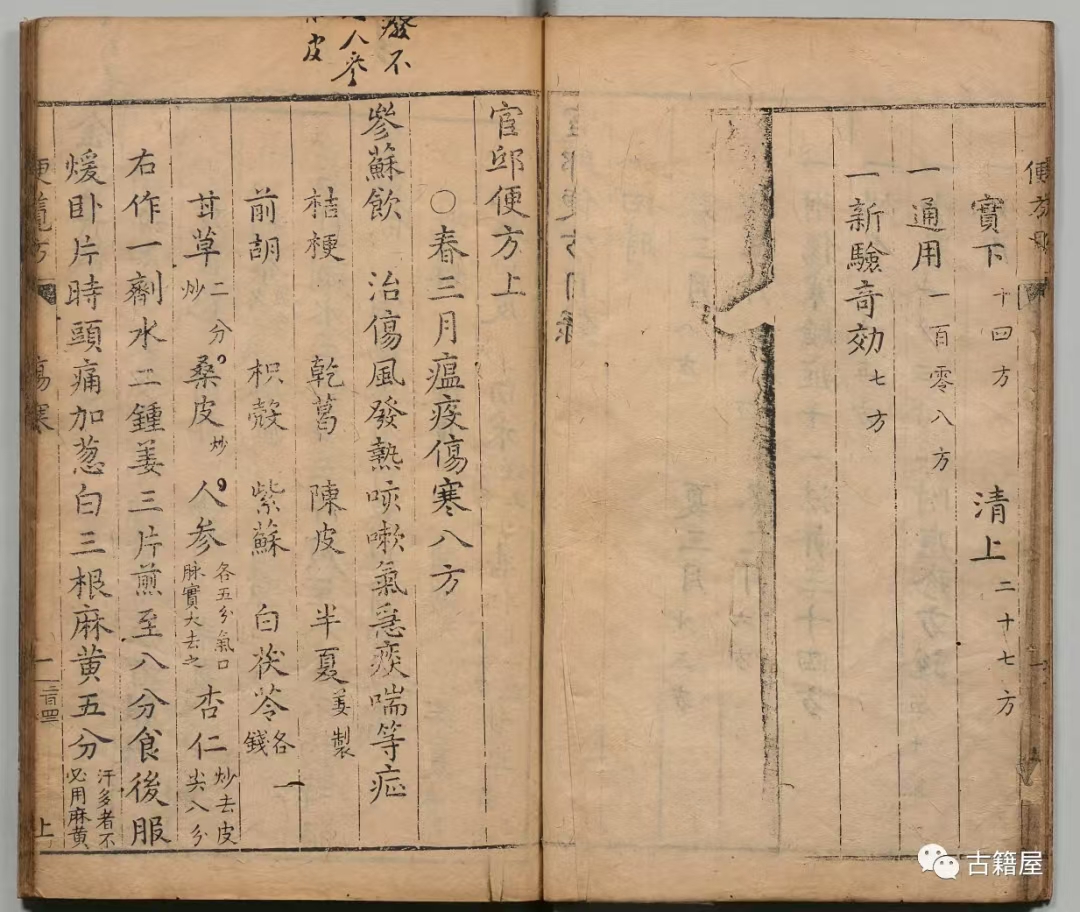 實下 十四方 清上 二十七方
一通用 一百零八方
一新驗奇効 七方
官邱便方上
○春三月瘟疫傷寒八方
參蘇飲 治傷風發熱咳嗽氣急痰喘等症
桔梗 乾葛 陳皮 半夏 姜製
前胡 枳殼 紫蘇 白茯苓 各一錢
甘草 炒二分 桑皮 炒 人參 各五分氣口脉實大去之 杏仁 炒去皮尖八分
右作一劑水二鍾姜三片煎至八分食後服
煖卧片時頭痛加葱白三根麻黄五分 汗多者不必用麻黄
傷寒
上
人參
皮
古籍屋